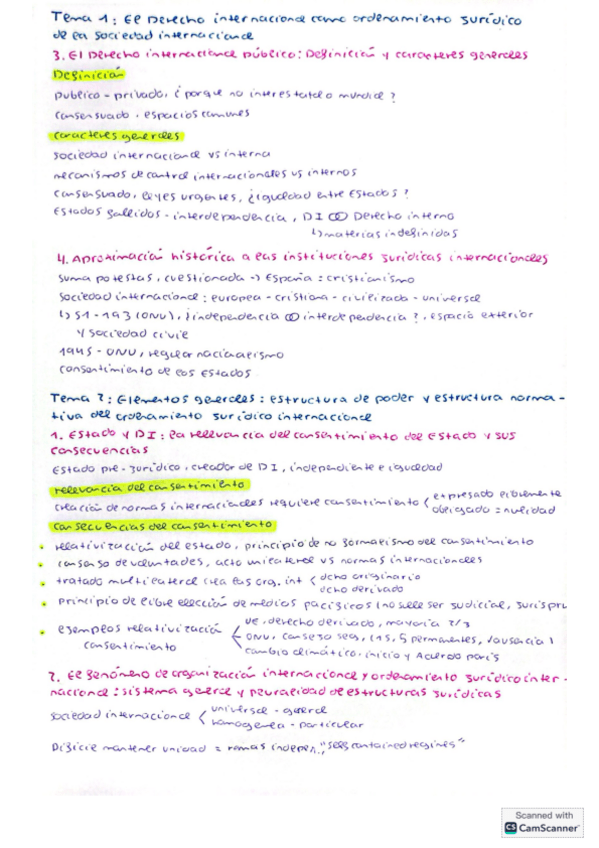 Tema 1: El Derecho internacional como ordenamiento jurídico
de la sociedad internacional
3. El Derecho internacional público: Definición y caracteres generales
Definición
Público - privado, ¿porque no interestatal o mundial?
Consensuado. espacios comunes
Caracteres generales
Sociedad internacional vs interna
mecanismos de control internacionales vs internos
Consensuado, leyes urgentes, ¿igualdad entre Estados?
Estados fallidos - interdependencia, DI Derecho interno
↳ materias indefinidas
4. Aproximación histórica a las instituciones jurídicas internacionales
Suma potestas, cuestionada → España: cristianismo
Sociedad internacional: europea - cristiana - civilizada - universal
↳ 51 - 193 (ONU), ¿independencia interdependencia?, espacio exterior
y sociedad civil
1945 - ONU, regular nacionalismo
Consentimiento de los Estados
Tema 2: Elementos generales: estructura de poder y estructura norma-
tiva del ordenamiento jurídico internacional
1. Estado y DI: la relevancia del consentimiento del Estado y sus
consecuencias
Estado pre-jurídico, creador de DI, independiente e igualdad
relevancia del consentimiento
Creación de normas internacionales requiere consentimiento < expresado libremente
obligado = nulidad
Consecuencias del consentimiento
• relativización del estado, principio de no formalismo del consentimiento
• consenso de voluntades, acto unilateral vs normas internacionales
• tratado multilateral crea las org. int < dcho originario
dcho derivado
• Principio de libre elección de medios pacíficos (no suele ser judicial, jurispru
• ejemplos relativización consentimiento < UE, derecho derivado, mayoría 2/3
ONU, consejo seg, (15, 5 permanentes,
cambio climático, inicio y Acuerdo París
2. El fenómeno de organización internacional y ordenamiento jurídico inter-
nacional: sistema general y pluralidad de estructuras jurídicas
Sociedad internacional < universal - general
homogenea - particular
Difícil mantener unidad = ramas indepen., "self contained regimes"
Scanned with
CS CamScanner